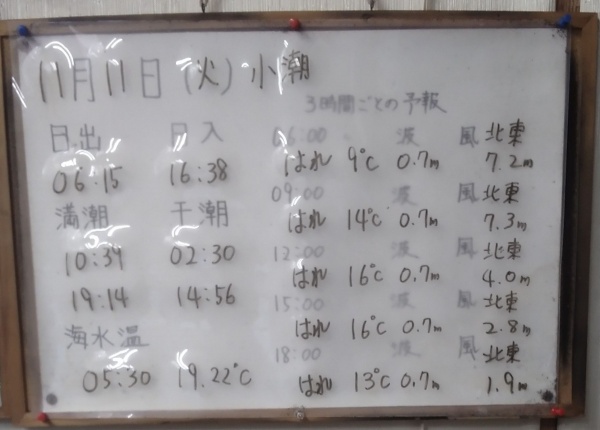 11月11日(火)小潮
3時間ごとの予報
日出 日入
06:15 16:38
満潮 干潮
10:39 02:30
19:14 14:56
海水温
05:30 19.22℃
06:00 波 風 北東
はれ 9℃ 0.7m 7.2m
09:00 波 風 北東
はれ 14℃ 0.7m 7.3m
12:00 波 風 北東
はれ 16℃ 0.7m 4.0m
15:00 波 風 北東
はれ 16℃ 0.7m 2.8m
18:00 波 風 北東
はれ 13℃ 0.7m 1.9m